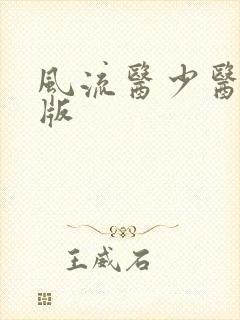 風流醫少醫
版
王威石